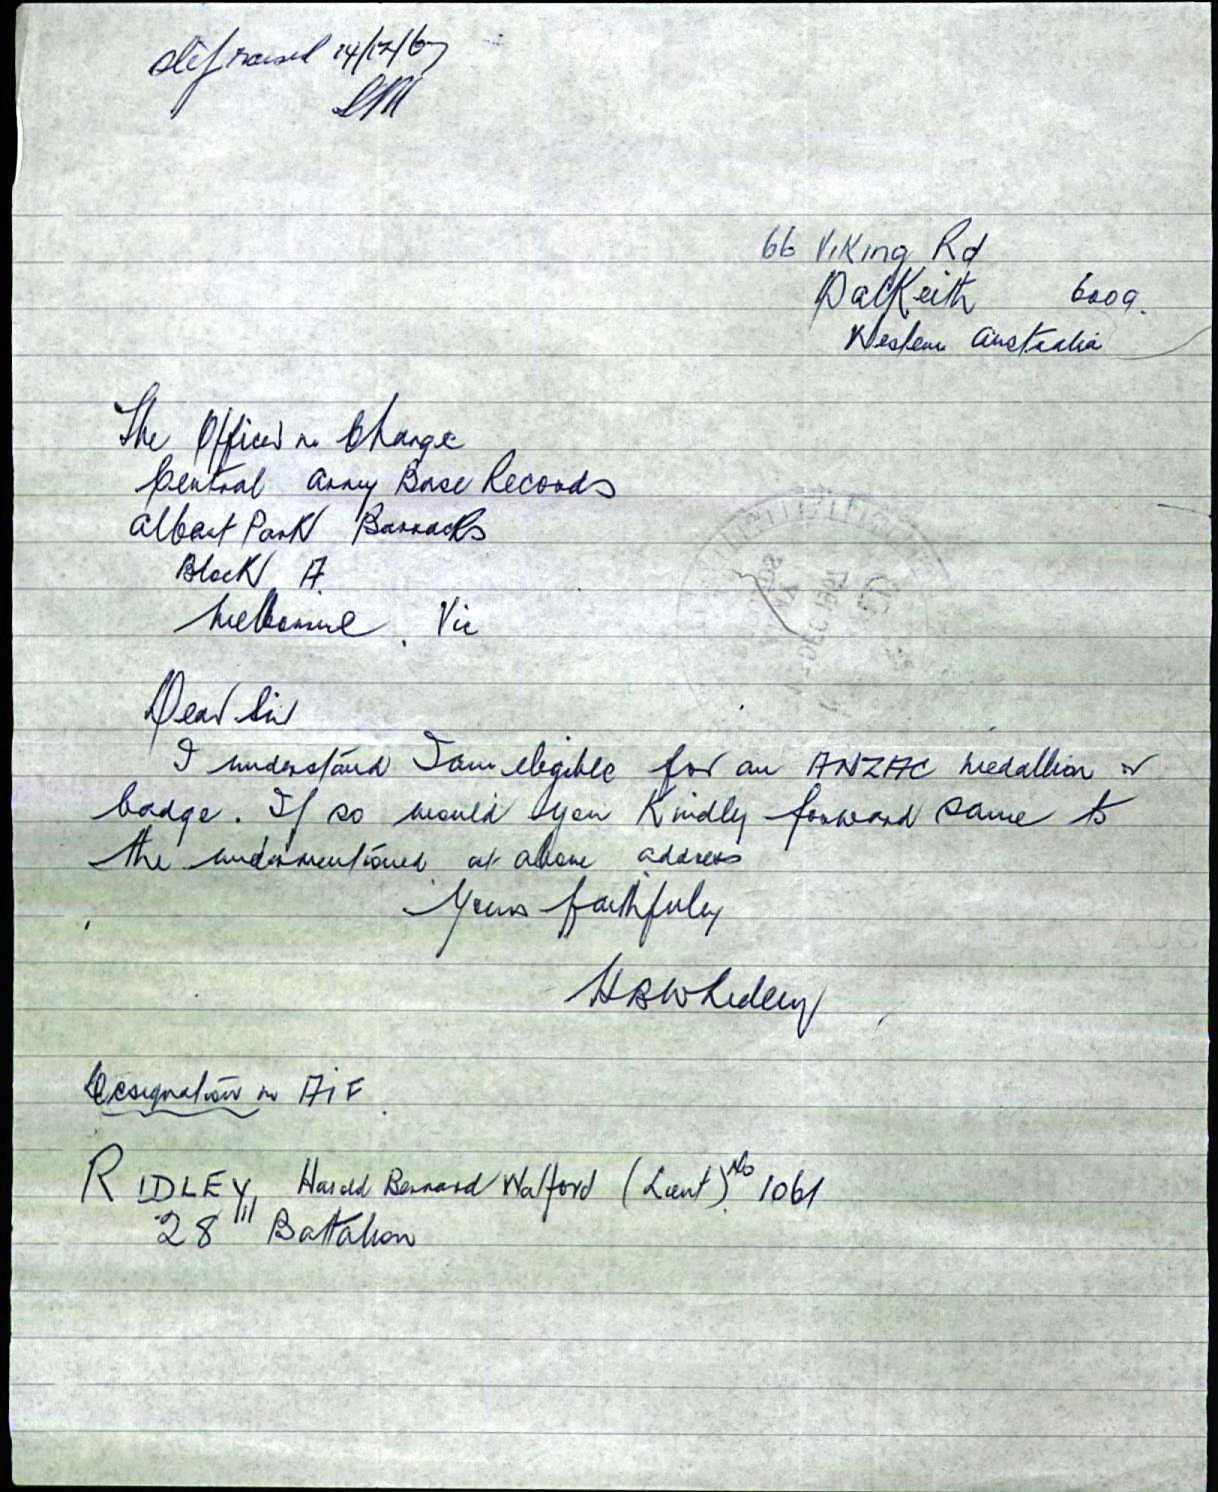 raised 14/12/67
66 Viking Rd
DalKeith 6009.
Western Australia
The Officer in Charge
Central Army Base Records
Albert Park Barracks
Block A
Melbourne. Vic
Dear Sir
I understand I am eligible for an ANZAC medallion or
badge. If so would you Kindly forward same to
the undermentioned at above address
Yours faithfully
HBW Ridley
Designation in AIF.
RIDLEY, Harold Bernard Walford (Lieut) No 1061
28th Battalion